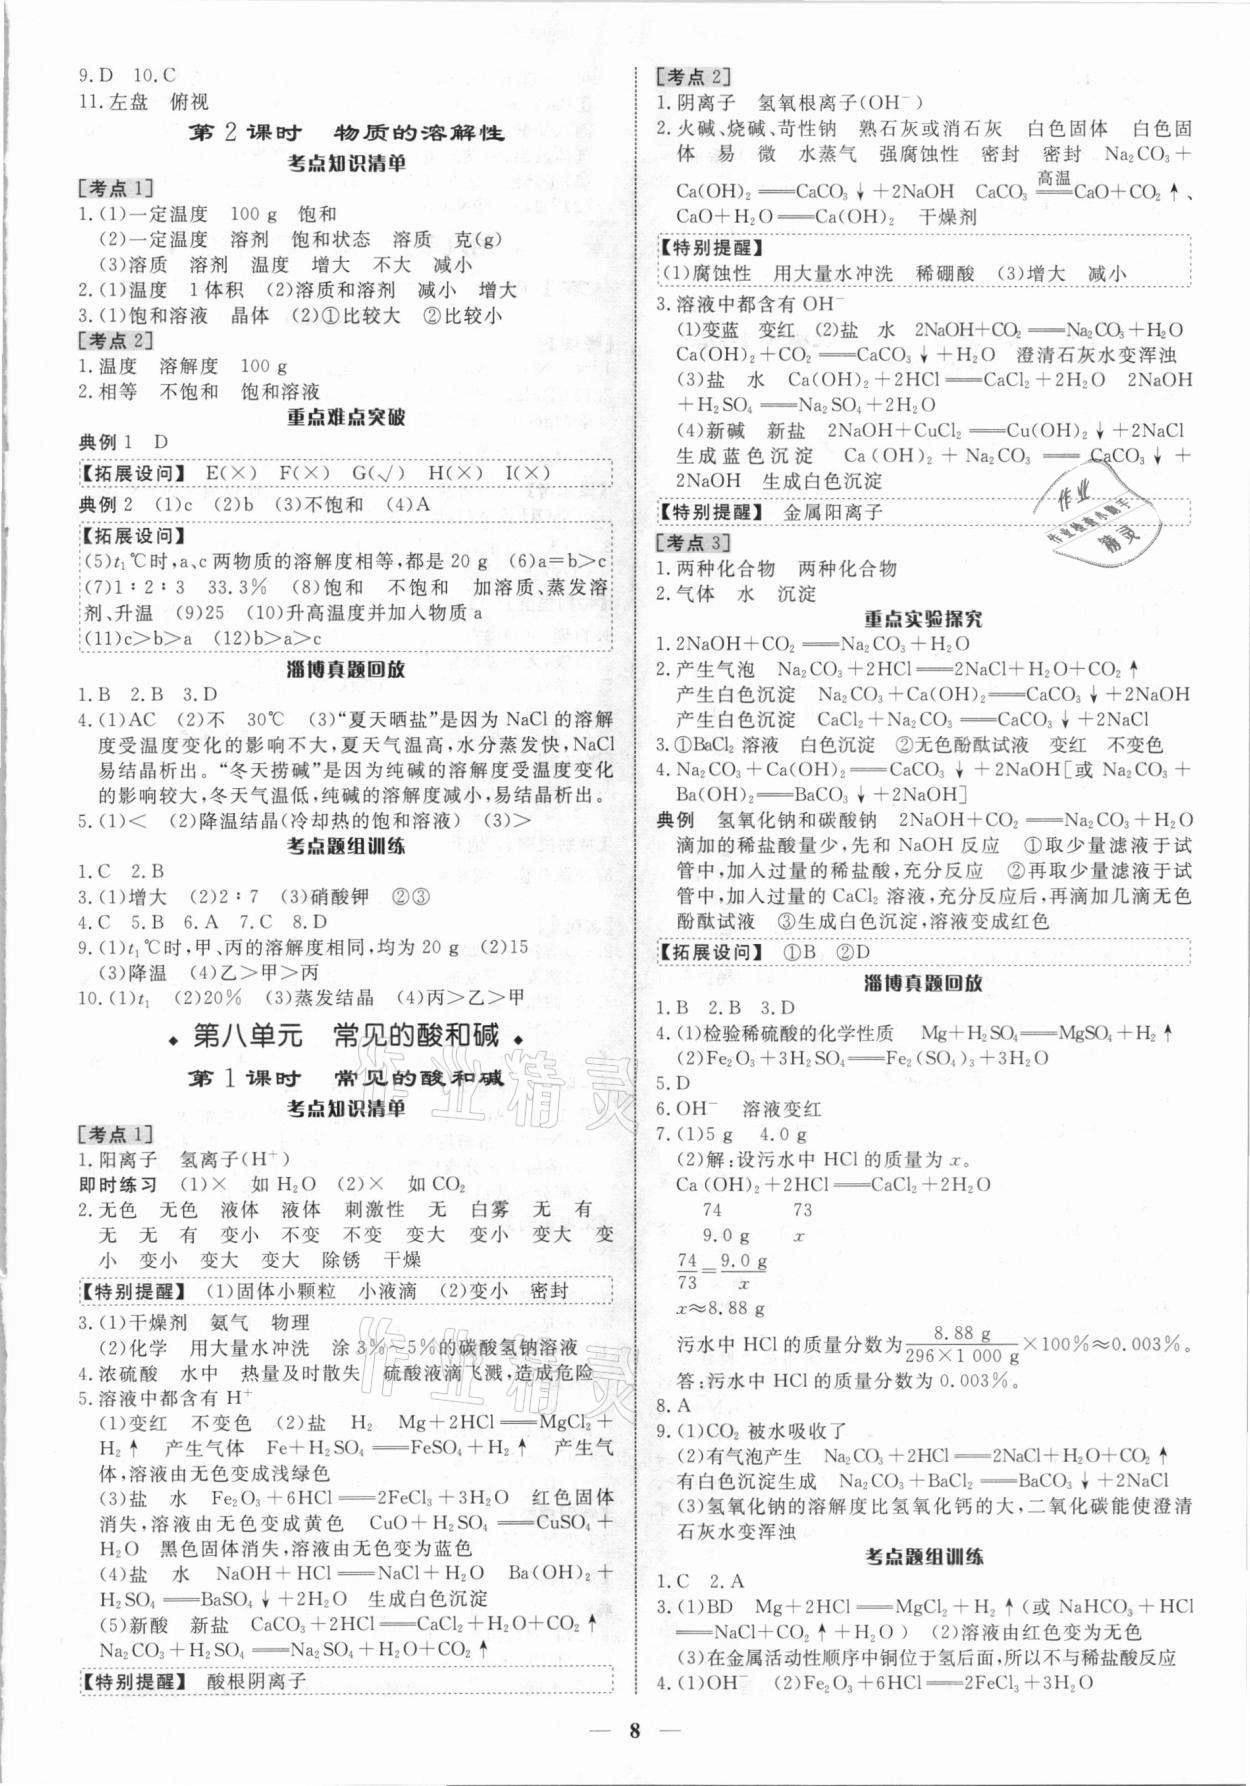 9.D 10.C
11.左盘 俯视
第2课时 物质的溶解性
考点知识清单
[考点1]
1.(1)一定温度 100 g 饱和
(2)一定温度 溶剂 饱和状态 溶质 克(g)
(3)溶质 溶剂 温度 增大 不大 减小
2.(1)温度 1体积 (2)溶质和溶剂 减小 增大
3.(1)饱和溶液 晶体 (2)①比较大 ②比较小
[考点2]
1.温度 溶解度 100 g
2.相等 不饱和 饱和溶液
重点难点突破
典例1 D
【拓展设问】 E(×) F(×) G(√) H(×) I(×)
典例2 (1)c (2)b (3)不饱和 (4)A
【拓展设问】
(5)t₁℃时,a、c两物质的溶解度相等,都是20 g (6)a=b>c
(7)1∶2∶3 33.3% (8)饱和 不饱和 加溶质、蒸发溶
剂、升温 (9)25 (10)升高温度并加入物质a
(11)c>b>a (12)b>a>c
淄博真题回放
1.B 2.B 3.D
4.(1)AC (2)不 30℃ (3)“夏天晒盐”是因为NaCl的溶解
度受温度变化的影响不大,夏天气温高,水分蒸发快,NaCl
易结晶析出。“冬天捞碱”是因为纯碱的溶解度受温度变化
的影响较大,冬天气温低,纯碱的溶解度减小,易结晶析出。
5.(1)< (2)降温结晶(冷却热的饱和溶液) (3)>
考点题组训练
1.C 2.B
3.(1)增大 (2)2∶7 (3)硝酸钾 ②③
4.C 5.B 6.A 7.C 8.D
9.(1)t₁℃时,甲、丙的溶解度相同,均为20 g (2)15
(3)降温 (4)乙>甲>丙
10.(1)t₁ (2)20% (3)蒸发结晶 (4)丙>乙>甲
第八单元 常见的酸和碱
第1课时 常见的酸和碱
考点知识清单
[考点1]
1.阳离子 氢离子(H⁺)
即时练习 (1)× 如H₂O (2)× 如CO₂
2.无色 无色 液体 液体 刺激性 无 白雾 无 有
无 无 有 变小 不变 不变 变大 变小 变大 变
小 变小 变大 变大 除锈 干燥
【特别提醒】 (1)固体小颗粒 小液滴 (2)变小 密封
3.(1)干燥剂 氨气 物理
(2)化学 用大量水冲洗 涂3%~5%的碳酸氢钠溶液
4.浓硫酸 水中 热量及时散失 硫酸液滴飞溅,造成危险
5.溶液中都含有H⁺
(1)变红 不变色 (2)盐 H₂ Mg+2HCl══MgCl₂+
H₂↑ 产生气体 Fe+H₂SO₄══FeSO₄+H₂↑ 产生气
体,溶液由无色变成浅绿色
(3)盐 水 Fe₂O₃+6HCl══2FeCl₃+3H₂O 红色固体
消失,溶液由无色变成黄色 CuO+H₂SO₄══CuSO₄+
H₂O 黑色固体消失,溶液由无色变为蓝色
(4)盐 水 NaOH+HCl══NaCl+H₂O Ba(OH)₂+
H₂SO₄══BaSO₄↓+2H₂O 生成白色沉淀
(5)新酸 新盐 CaCO₃+2HCl══CaCl₂+H₂O+CO₂↑
Na₂CO₃+H₂SO₄══Na₂SO₄+H₂O+CO₂↑
【特别提醒】 酸根阴离子
[考点2]
1.阴离子 氢氧根离子(OH⁻)
2.火碱、烧碱、苛性钠 熟石灰或消石灰 白色固体 白色固
体 易 微 水蒸气 强腐蚀性 密封 密封 Na₂CO₃+
Ca(OH)₂══CaCO₃↓+2NaOH CaCO₃══(高温)CaO+CO₂↑、
CaO+H₂O══Ca(OH)₂ 干燥剂
【特别提醒】
(1)腐蚀性 用大量水冲洗 稀硼酸 (3)增大 减小
3.溶液中都含有OH⁻
(1)变蓝 变红 (2)盐 水 2NaOH+CO₂══Na₂CO₃+H₂O
Ca(OH)₂+CO₂══CaCO₃↓+H₂O 澄清石灰水变浑浊
(3)盐 水 Ca(OH)₂+2HCl══CaCl₂+2H₂O 2NaOH
+H₂SO₄══Na₂SO₄+2H₂O
(4)新碱 新盐 2NaOH+CuCl₂══Cu(OH)₂↓+2NaCl
生成蓝色沉淀 Ca(OH)₂+Na₂CO₃══CaCO₃↓+
2NaOH 生成白色沉淀
【特别提醒】 金属阳离子
[考点3]
1.两种化合物 两种化合物
2.气体 水 沉淀
重点实验探究
1.2NaOH+CO₂══Na₂CO₃+H₂O
2.产生气泡 Na₂CO₃+2HCl══2NaCl+H₂O+CO₂↑
产生白色沉淀 Na₂CO₃+Ca(OH)₂══CaCO₃↓+2NaOH
产生白色沉淀 CaCl₂+Na₂CO₃══CaCO₃↓+2NaCl
3.①BaCl₂溶液 白色沉淀 ②无色酚酞试液 变红 不变色
4.Na₂CO₃+Ca(OH)₂══CaCO₃↓+2NaOH[或Na₂CO₃+
Ba(OH)₂══BaCO₃↓+2NaOH]
典例 氢氧化钠和碳酸钠 2NaOH+CO₂══Na₂CO₃+H₂O
滴加的稀盐酸量少,先和NaOH反应 ①取少量滤液于试
管中,加入过量的稀盐酸,充分反应 ②再取少量滤液于试
管中,加入过量的CaCl₂溶液,充分反应后,再滴加几滴无色
酚酞试液 ③生成白色沉淀,溶液变成红色
【拓展设问】 ①B ②D
淄博真题回放
1.B 2.B 3.D
4.(1)检验稀硫酸的化学性质 Mg+H₂SO₄══MgSO₄+H₂↑
(2)Fe₂O₃+3H₂SO₄══Fe₂(SO₄)₃+3H₂O
5.D
6.OH⁻ 溶液变红
7.(1)5 g 4.0 g
(2)解:设污水中HCl的质量为x。
Ca(OH)₂+2HCl══CaCl₂+2H₂O
74 73
9.0 g x
74/73=9.0 g/x
x≈8.88 g
污水中HCl的质量分数为8.88 g/(296×1 000 g)×100%≈0.003%。
答:污水中HCl的质量分数为0.003%。
8.A
9.(1)CO₂被水吸收了
(2)有气泡产生 Na₂CO₃+2HCl══2NaCl+H₂O+CO₂↑
有白色沉淀生成 Na₂CO₃+BaCl₂══BaCO₃↓+2NaCl
(3)氢氧化钠的溶解度比氢氧化钙的大,二氧化碳能使澄清
石灰水变浑浊
考点题组训练
1.C 2.A
3.(1)BD Mg+2HCl══MgCl₂+H₂↑(或NaHCO₃+HCl
══NaCl+CO₂↑+H₂O) (2)溶液由红色变为无色
(3)在金属活动性顺序中铜位于氢后面,所以不与稀盐酸反应
4.(1)OH⁻ (2)Fe₂O₃+6HCl══2FeCl₃+3H₂O
作业
作业检查小助手
精灵
作业精灵
作业精灵
— 8 —